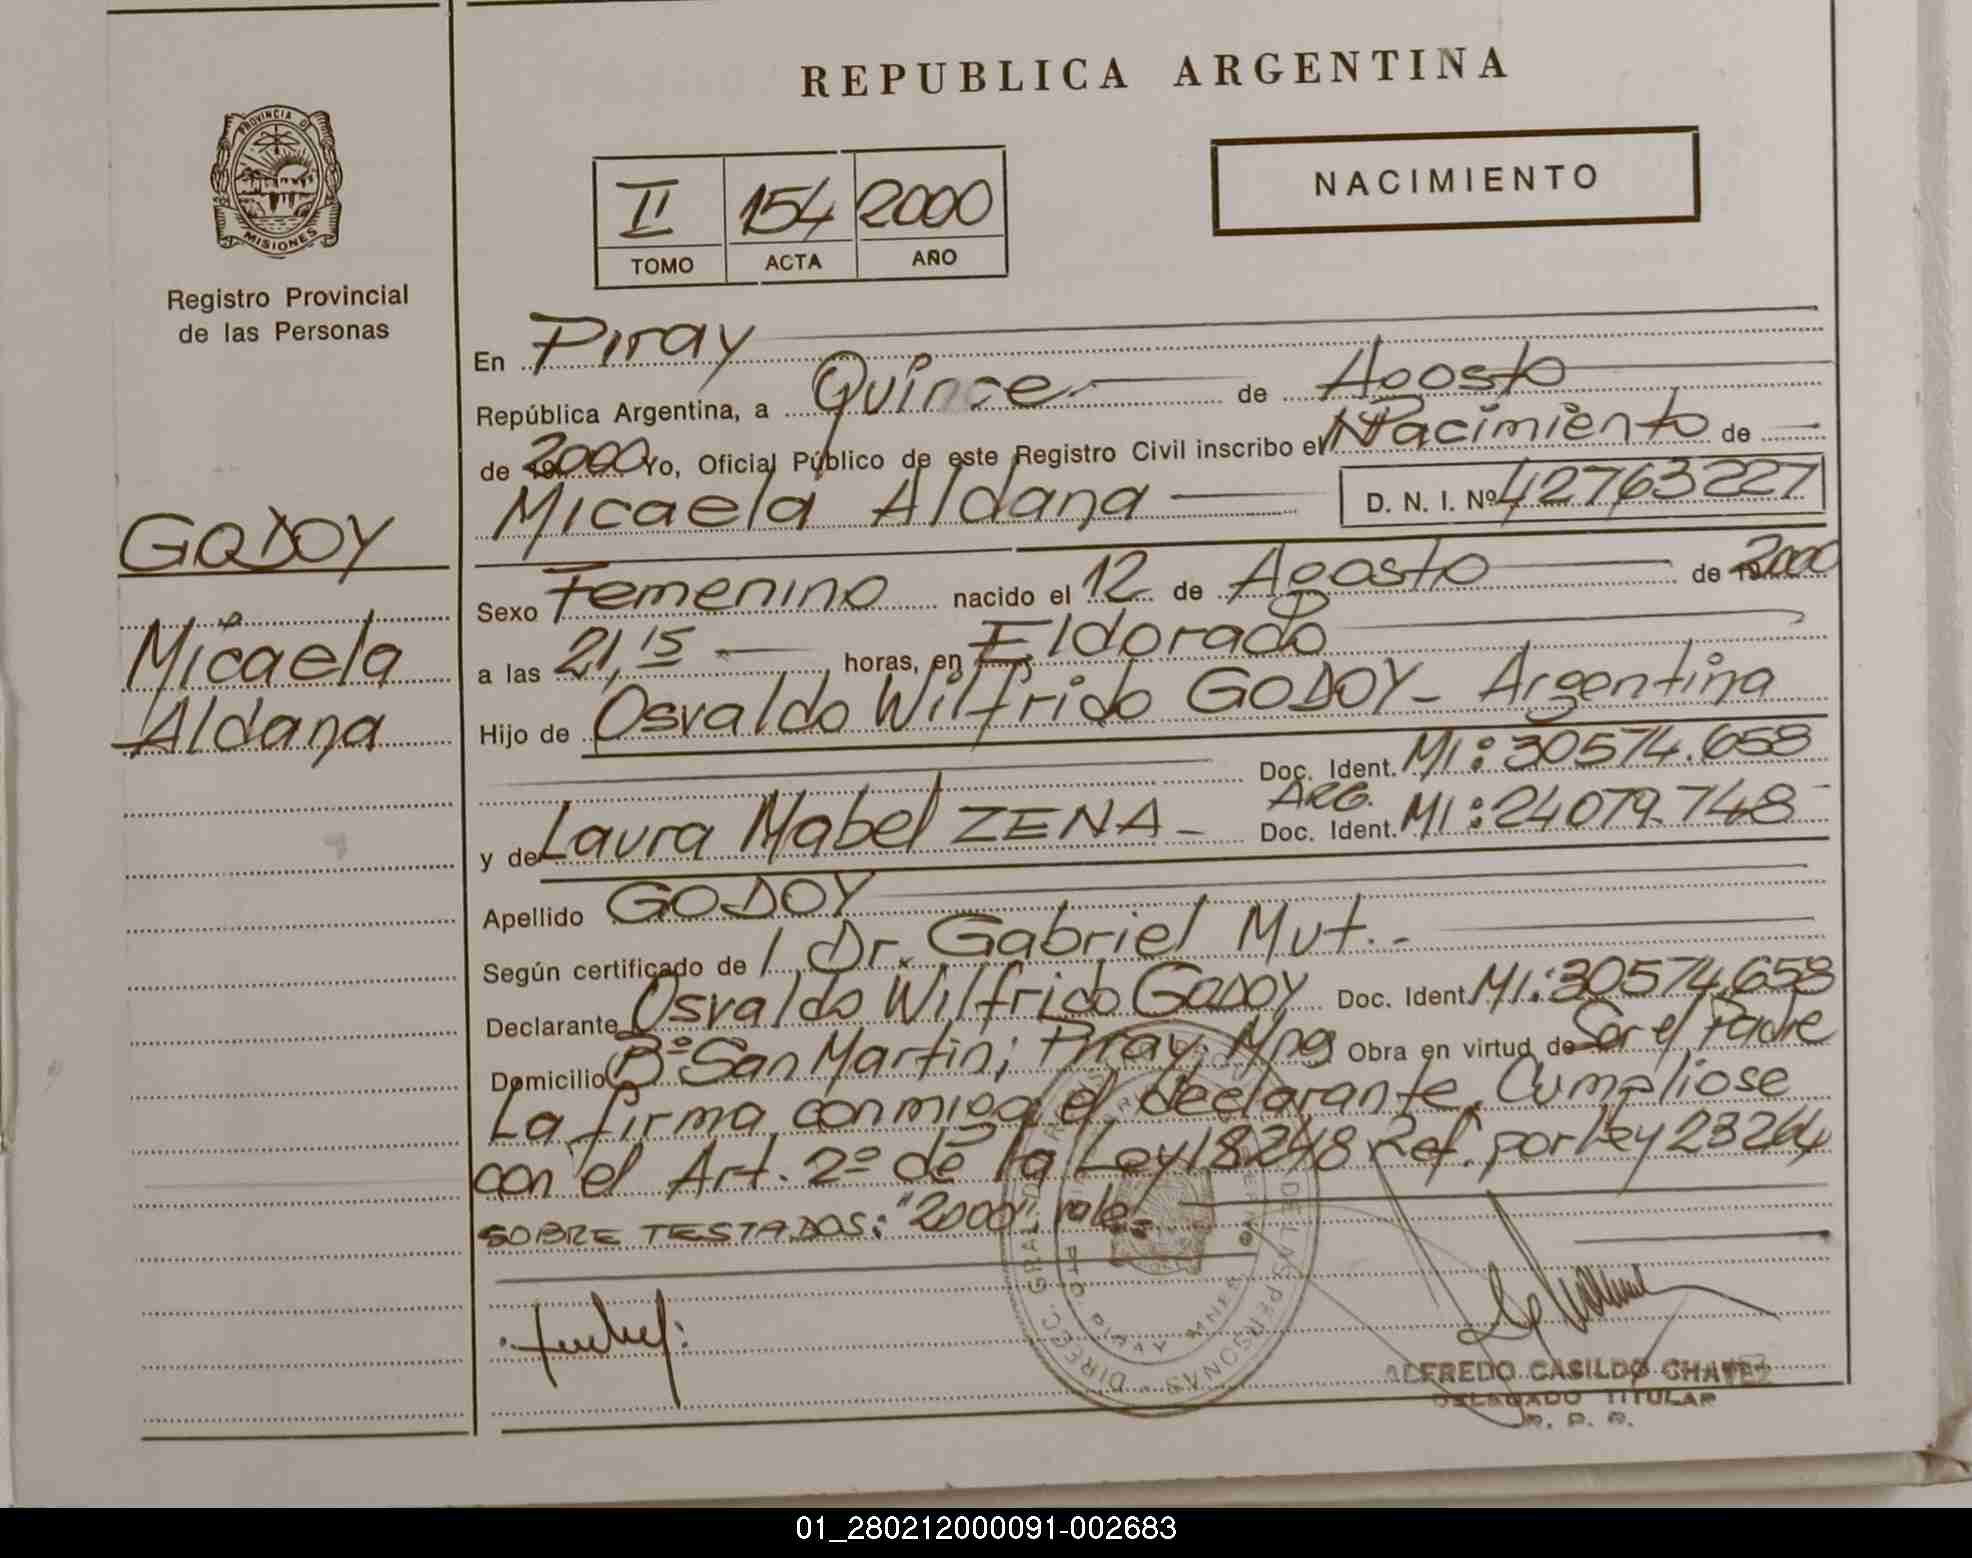 REPUBLICA ARGENTINA
PROVINCIA DE
MISIONES
Registro Provincial
de las Personas
NACIMIENTO
II 154 2000
TOMO ACTA AÑO
GODOY
Micaela
Aldana
En Piray
República Argentina, a Quince de Agosto
de 2000 Yo, Oficial Público de este Registro Civil inscribo el Nacimiento de
Micaela Aldana D. N. I. Nº 42763227
Sexo Femenino nacido el 12 de Agosto de 2000
a las 21,15 horas, en Eldorado
Hijo de Osvaldo Wilfrido GODOY - Argentina
Doc. Ident. MI: 30574.658
ARG.
y de Laura Mabel ZENA - Doc. Ident. MI: 24079.748
Apellido GODOY
Según certificado de / Dr. Gabriel Mut.-
Declarante Osvaldo Wilfrido GODOY Doc. Ident. MI: 30574.658
Domicilio Bº San Martin; Piray. Mnes Obra en virtud de Ser el Padre
La firma conmigo el declarante. Cumpliose
con el Art. 2º de la Ley 18248 Ref. por Ley 23264
SOBRE TESTADOS: "2000", vale.-
DIREC. GRAL. DE LAS PERSONAS
PTO. PIRAY MNES
ALFREDO CASILDO CHAVEZ
DELEGADO TITULAR
R. P. P.
01_280212000091-002683